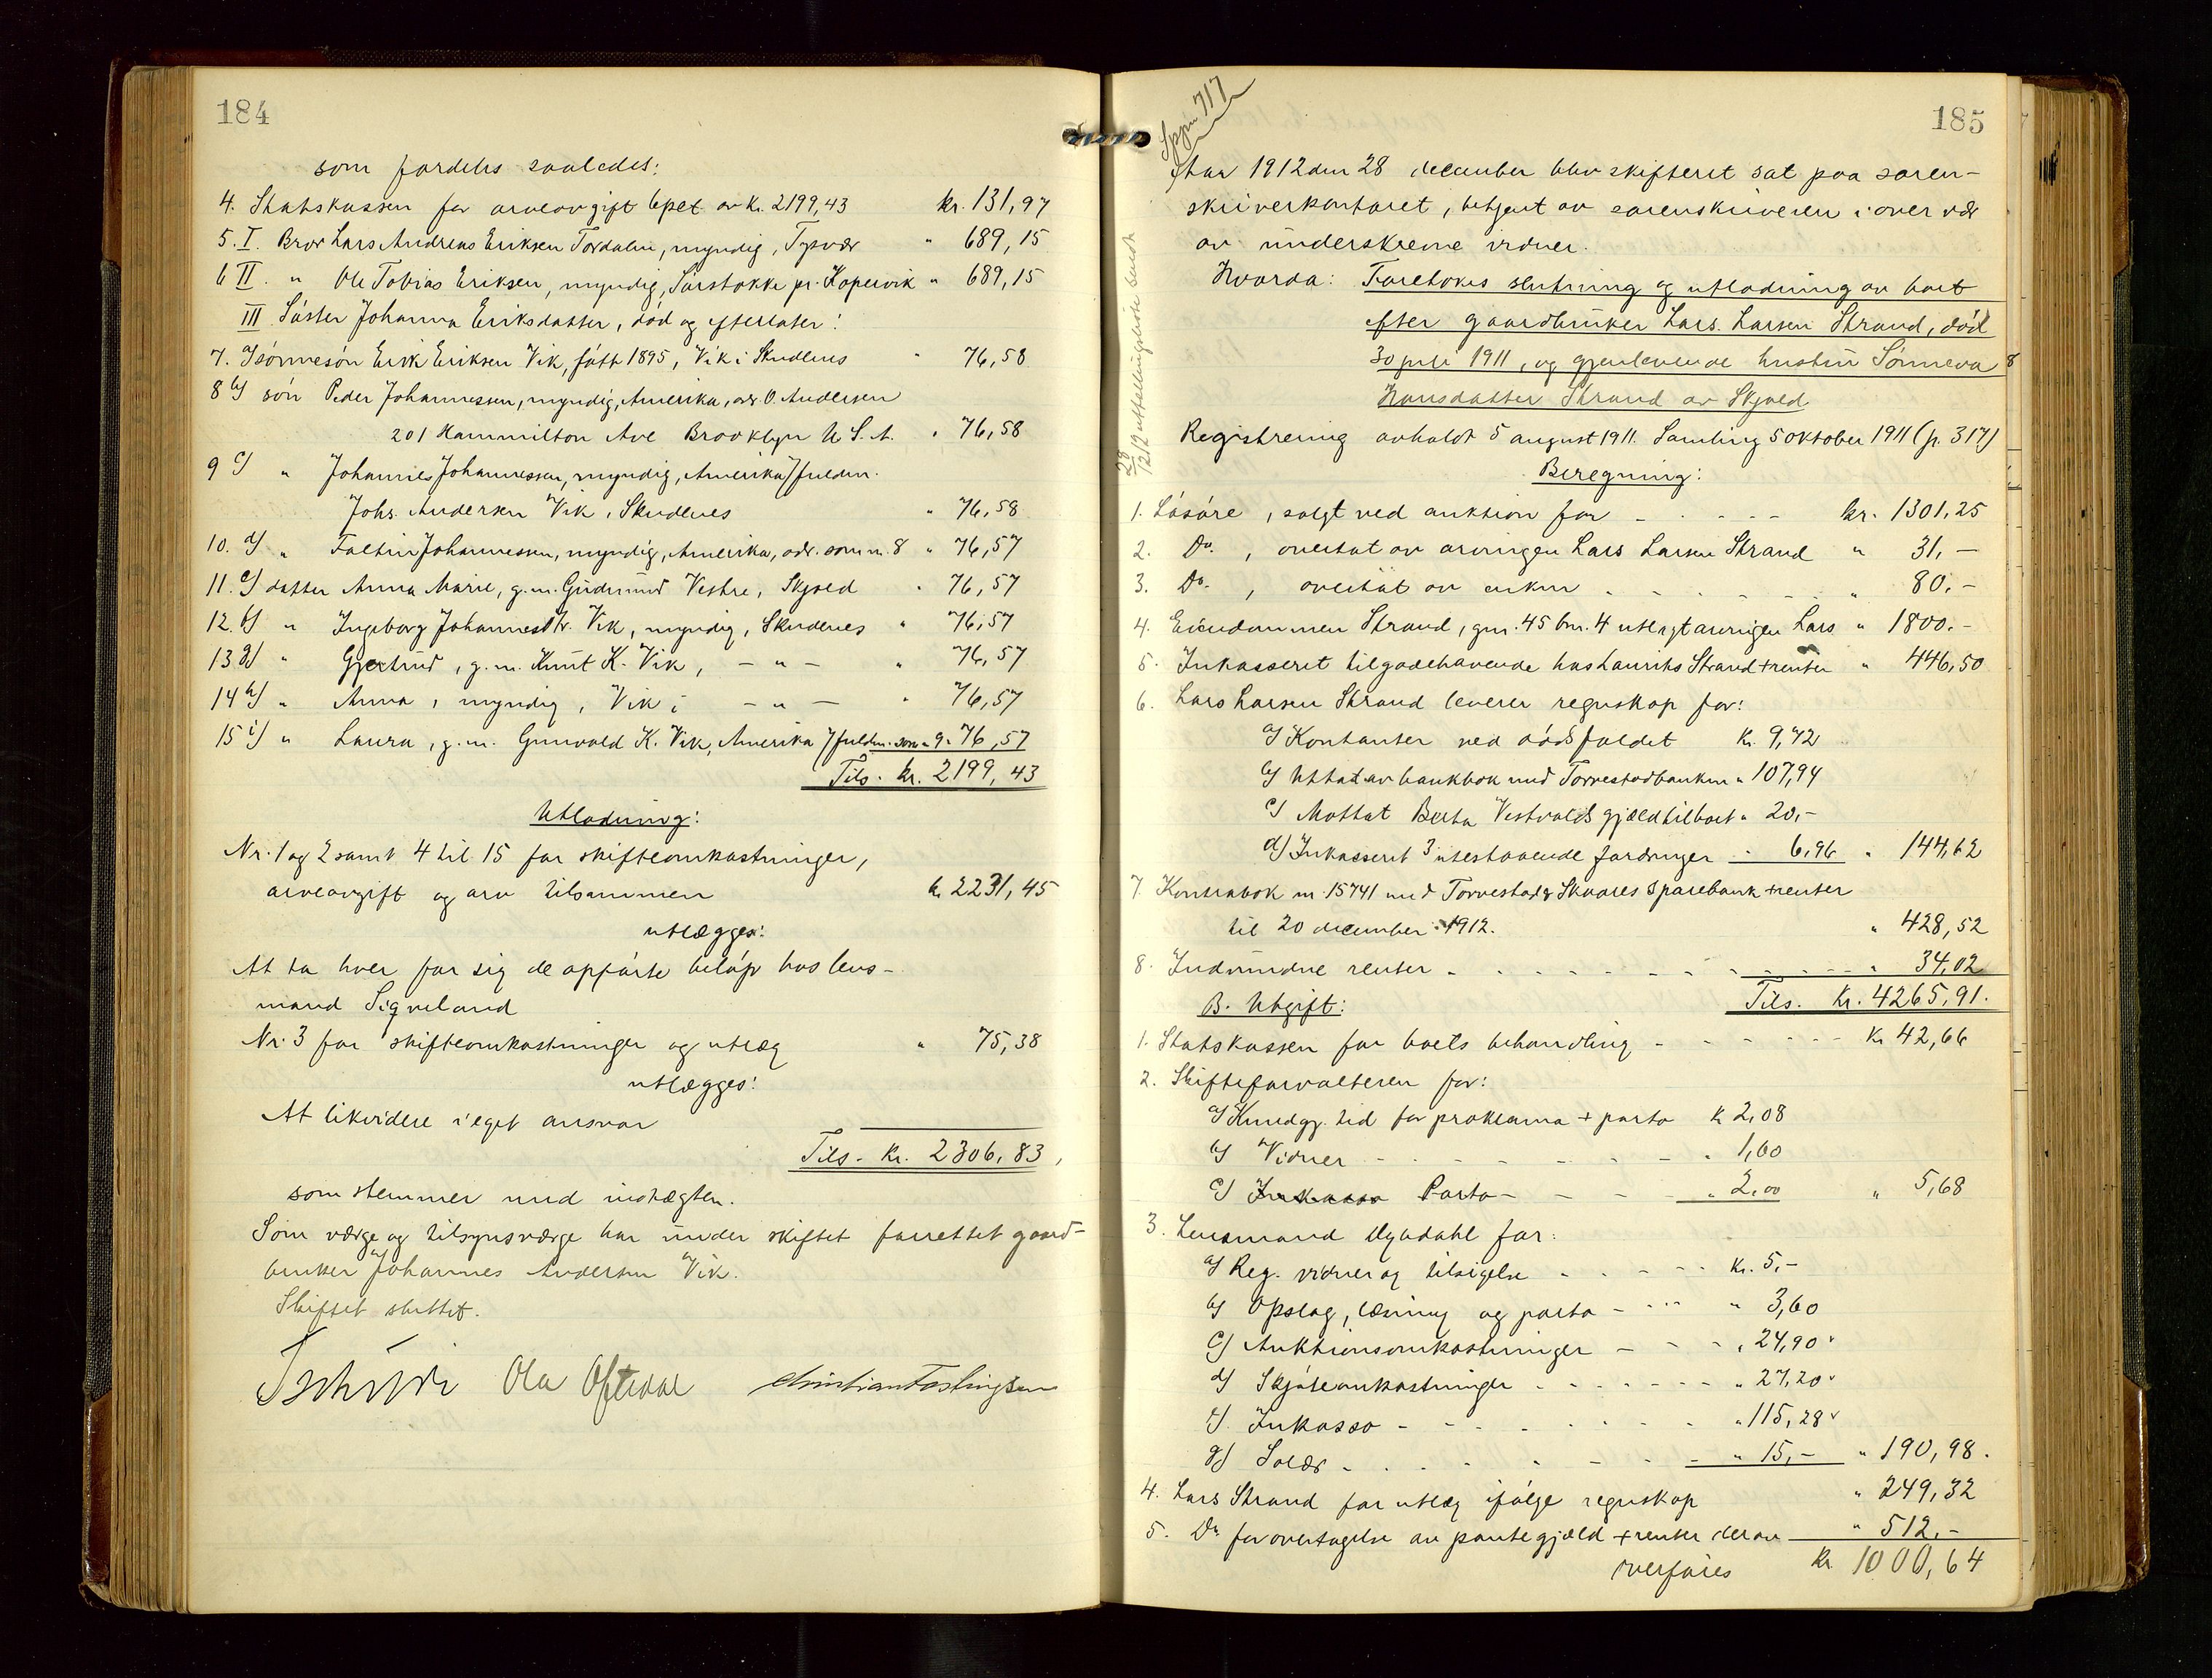 184
som fordeles saaledes:
4. Statskassen for arveavgift 6pct. av kr. 2199,43 kr. 131,97
5. I. Bror Lars Andreas Eriksen Tordalen, myndig, Tysvær " 689,15
6 II. " Ole Tobias Eriksen, myndig, Sörstokke pr. Kopervik " 689,15
III Söster Johanna Eriksdatter, död og efterlater:
7. a) sönnesön Erik Eriksen Vik, fött 1895, Vik i Skudenes " 76,58
8 b) sön Peder Johannessen, myndig, Amerika, adr. O. Andersen
201 Hammilton Ave Brooklyn U.S.A. " 76,58
9 c) " Johannes Johannessen, myndig, Amerika / fuldm.
Johs. Andersen Vik, Skudenes " 76,58
10. d) " Faltin Johannessen, myndig, Amerika, adr. som n. 8 " 76,57
11. e) datter Anna Marie, g.m. Gudmund Vestre, Skjold " 76,57
12. f) " Ingeborg Johannesdtr. Vik, myndig, Skudenes " 76,57
13 g) " Gjertrud, g.m. Knut K. Vik, - " - " 76,57
14 h) " Anna, myndig, Vik i - " - " 76,57
15 i) " Laura, g.m. Gunvald K. Vik, Amerika / fuldm. som n. 9 " 76,57
Tils. kr. 2199,43
Utlodning:
Nr. 1 og 2 samt 4 til 15 for skifteomkostninger,
arveavgift og arv tilsammen kr. 2231,45
utlægges:
At ta hver for sig de opförte belöp hos lens-
mand Sigveland
Nr. 3 for skifteomkostninger og utlæg " 75,38
utlægges:
At likvidere i eget ansvar
Tils. kr. 2306,83,
som stemmer med indtægten.
Som værge og tilsynsværge har under skiftet forrettet gaard-
bruker Johannes Andersen Vik.
Skiftet sluttet.
Ola Oftedal Christian Fostingsen
185
717
28/12/12 utstellingsliste sendt
Aar 1912 den 28 december blev skifteret sat paa soren-
skriverkontoret, betjent av sorenskriveren i overvær
av underskrevne vidner.
Hvorda: Foretokes slutning og utlodning av boet
efter gaardbruker Lars Larsen Strand, död
30 juli 1911, og gjenlevende hustru Sönneva 8
Hansdatter Strand av Skjold
Registrering avholdt 5 august 1911. Samling 5 oktober 1911 (p. 317)
Beregning:
1. Lösöre, solgt ved auktion for - - - - kr. 1301,25
2. Do. , overtat av arvingen Lars Larsen Strand " 31,-
3. Do. , overtat av enken - - - - " 80,-
4. Eiendommen Strand, gnr. 45 bnr. 4 utlagt arvingen Lars " 1800.-
5. Inkasseret tilgodehavende hos Lauritz Strand + renter " 446,50
6. Lars Larsen Strand leverer regnskap for:
a) Kontanter ved dödsfaldet kr. 9,72
b) Uttat av bankbok med Torvestadbanken " 107,94
c) Mottat Berta Vestvolds gjæld til boet " 20,-
d) Inkasseret 3 utestaaende fordringer " 6,96 " 144,62
7. Kontrabok nr. 15741 med Torvestad & Skaares Sparebank + renter
til 20 december 1912. " 428,52
8. Indvundne renter - - - - " 34,02
Tils. Kr. 4265,91.
B. Utgift:
1. Statskassen for boets behandling - - - - kr. 42,66
2. Skifteforvalteren for:
a) Kundgj. tid for proklama + porto kr. 2,08
b) Vidner - - - - " 1,60
c) Inkasso Porto - - - - " 2,00 " 5,68
3. Lensmand Nydahl for:
a) Reg. vidner og tilsigelse - - - - kr. 5,-
b) Opslag, læsning og porto - - - " 3,60
c) Auktionsomkostninger - - - " 24,90
d) Skjöteomkostninger - - - - " 27,20
e) Inkasso - - - - " 115,28
g) Salær - - - - " 15,- " 190,98.
4. Lars Strand for utlæg ifölge regnskap " 249,32
5. Do. for overtagelse av pantegjæld + renter derav " 512.-
overföres kr. 1000,64